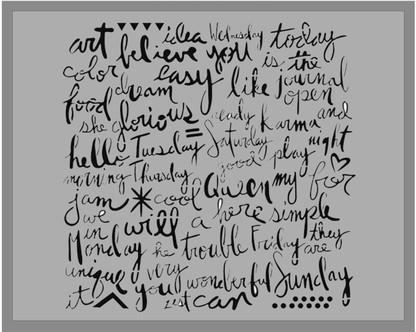 art idea Wednesday today
believe you is the
color easy like journal
food dream open
she glorious ready karma and
hello Tuesday Saturday night
morning Thursday good play
jam cool Queen my for
we will a here simple
in
Monday he trouble Friday are they
unique very
it you wonderful Sunday
can